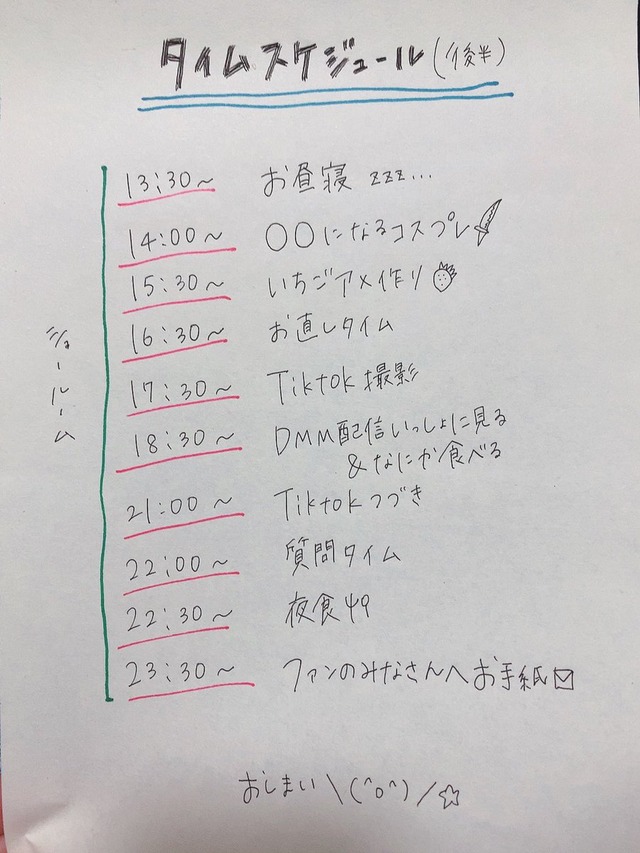 タイムスケジュール(後半)
ショールーム
13:30〜 お昼寝 zzz...
14:00〜 〇〇になるコスプレ
15:30〜 いちごアメ作り
16:30〜 お直しタイム
17:30〜 Tiktok撮影
18:30〜 DMM配信いっしょに見る
&なにか食べる
21:00〜 Tiktokつづき
22:00〜 質問タイム
22:30〜 夜食
23:30〜 ファンのみなさんへお手紙
おしまい\(^o^)/☆